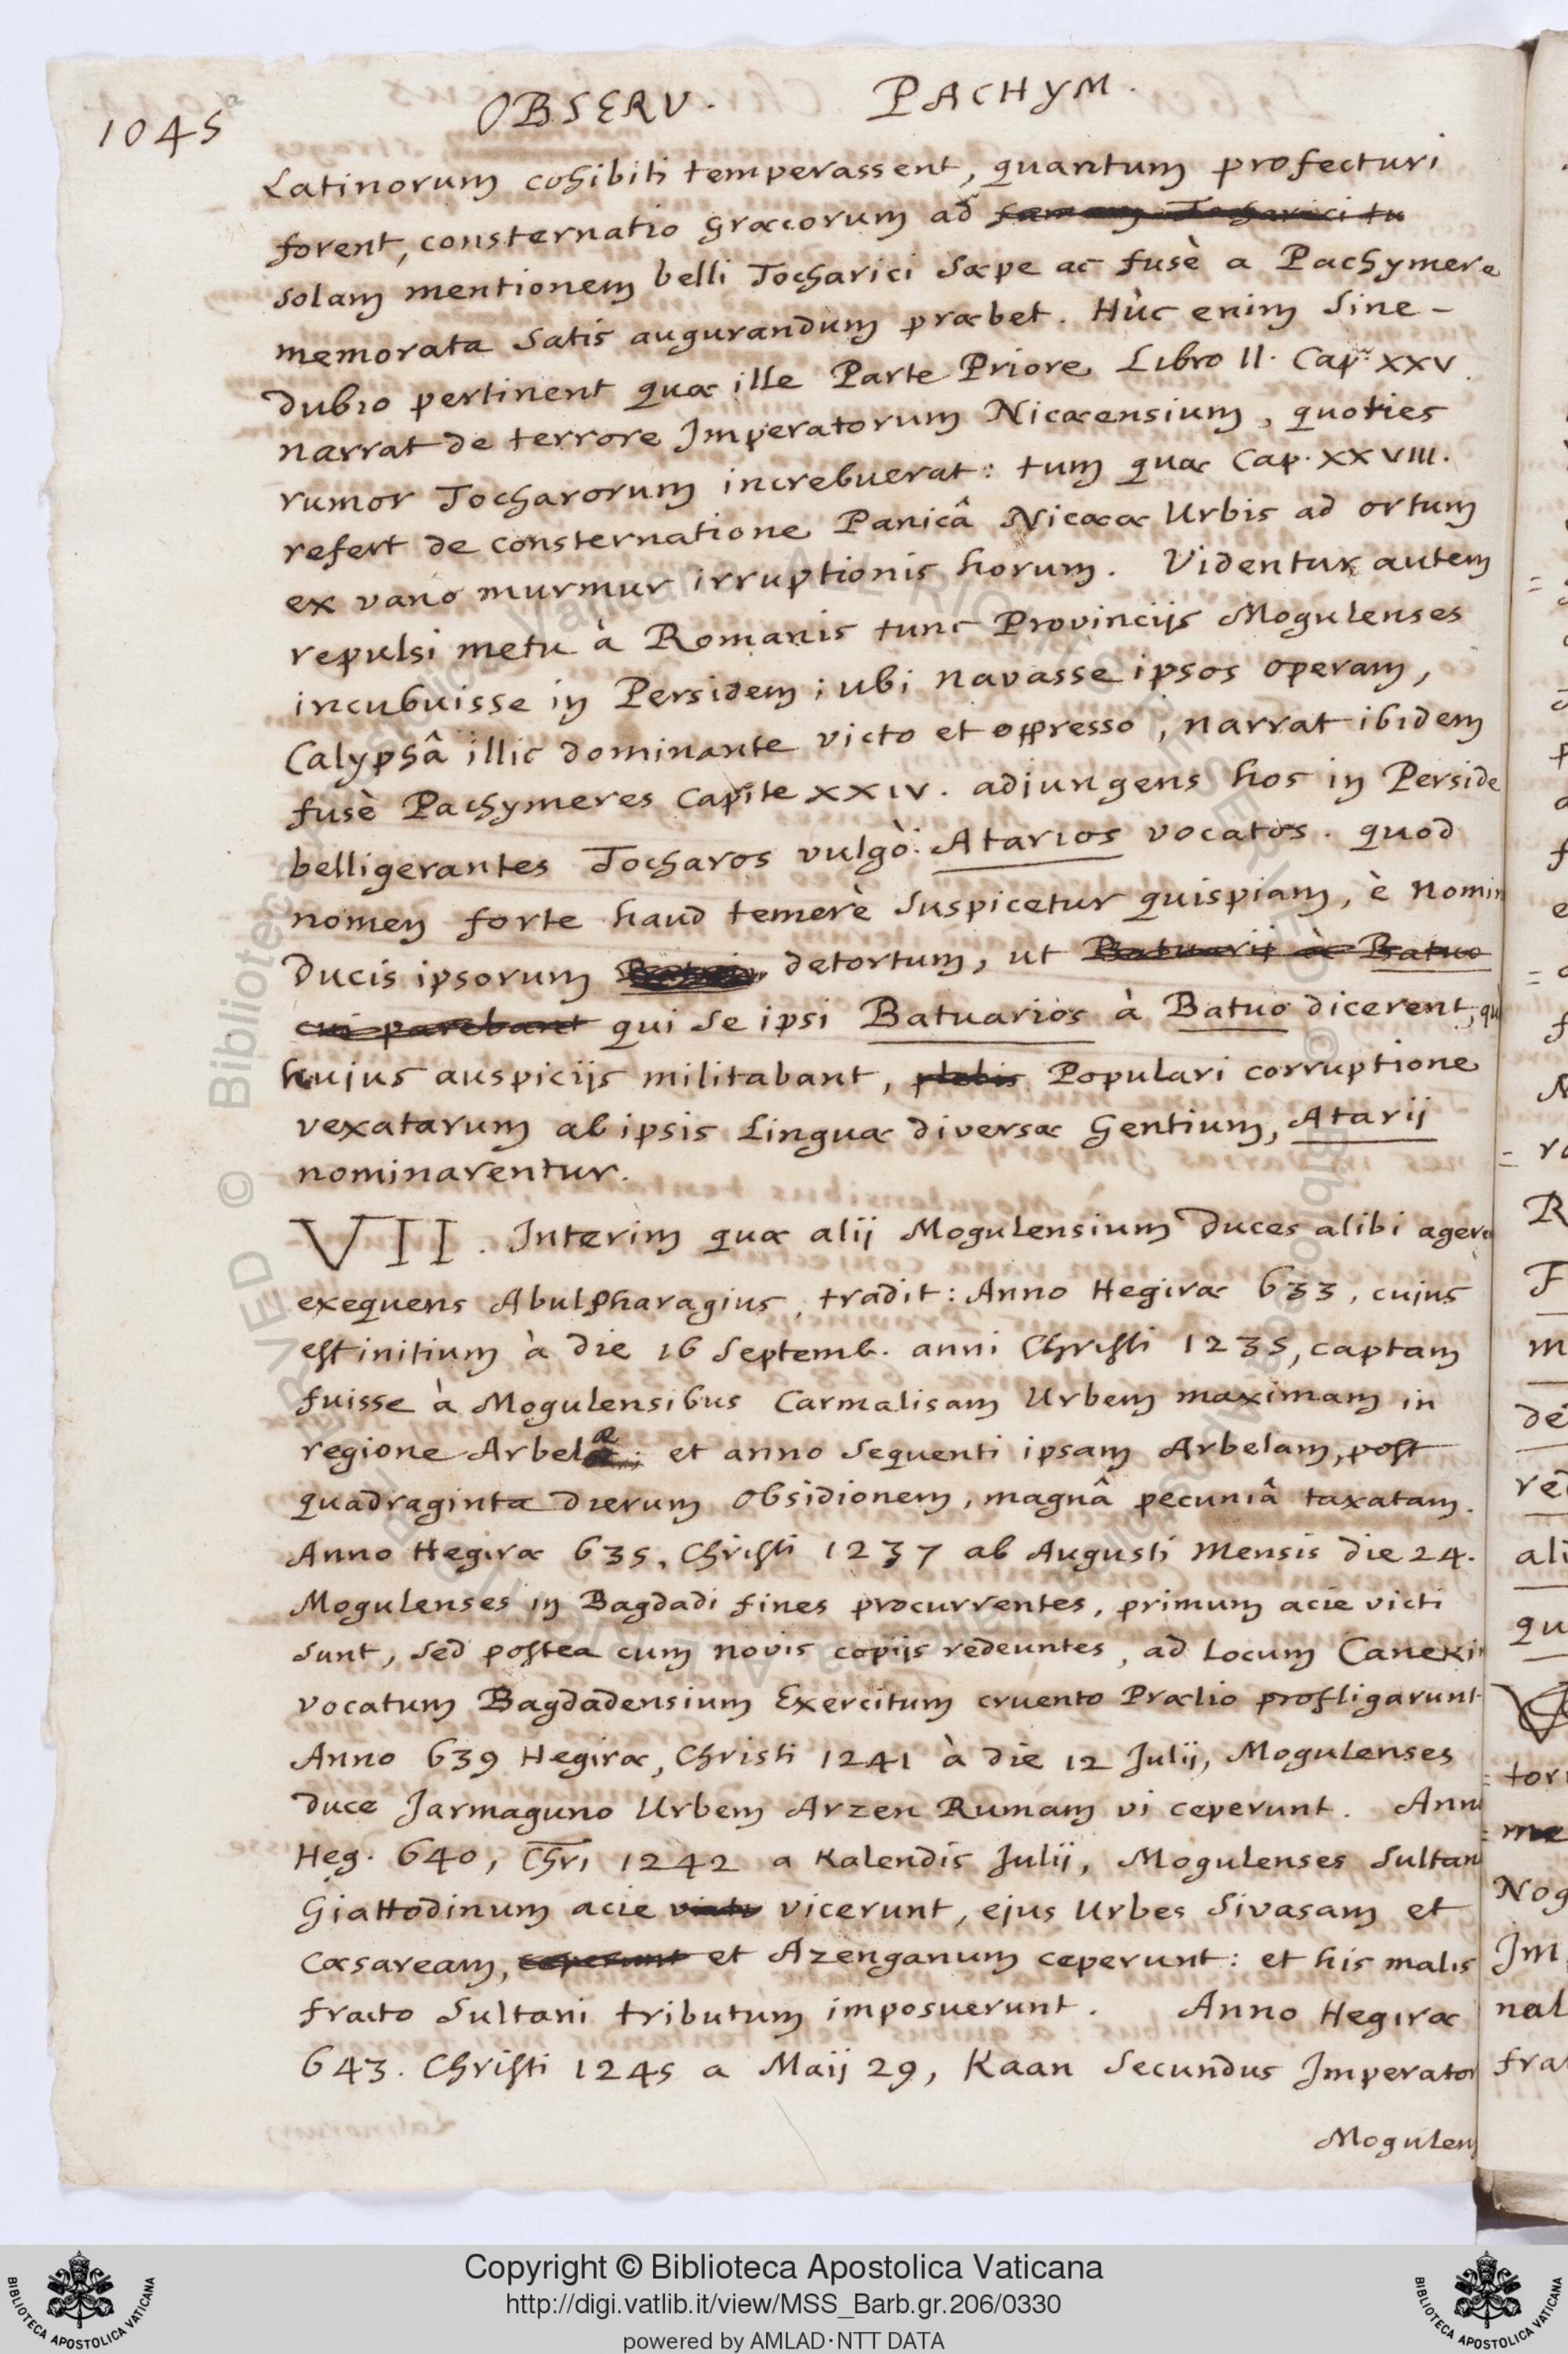 1045
OBSERV. PACHYM.
Latinorum cohibiti temperassent, quantum profecturi
forent, consternatio græcorum ad
solam mentionem belli Tocharici sæpe ac fusè a Pachymere
memorata satis augurandum præbet. Hùc enim sine-
dubio pertinent quæ ille Parte Priore Libro II. Cap. XXV.
narrat de terrore Imperatorum Nicæensium, quoties
rumor Tocharorum increbuerat: tum quæ Cap. XXVIII.
refert de consternatione Panicâ Nicææ Urbis ad ortum
ex vano murmur irruptionis horum. Videntur autem
repulsi metu à Romanis tunc Provincijs Mogulenses
incubuisse in Persidem; ubi navasse ipsos operam,
Calyphâ illic dominante victo et oppresso, narrat ibidem
fusè Pachymeres Capite XXIV. adjungens hos in Perside
belligerantes Tocharos vulgò Atarios vocatos. quod
nomen forte haud temerè suspicetur quispiam, è nomin
Ducis ipsorum detortum, ut Batuarij à Batuo
cui parebant qui se ipsi Batuarios à Batuo dicerent, qui
hujus auspicijs militabant, plebis Populari corruptione
vexatarum ab ipsis Linguæ diversæ Gentium, Atarij
nominarentur.
VII. Interim quæ alij Mogulensium Duces alibi agere
exequens Abulpharagius, tradit: Anno Hegiræ 633, cujus
est initium à die 16 Septemb. anni Christi 1235, captam
fuisse à Mogulensibus Carmalisam Urbem maximam in
regione Arbelæ; et anno sequenti ipsam Arbelam, post
quadraginta dierum obsidionem, magnâ pecuniâ taxatam.
Anno Hegiræ 635, Christi 1237 ab Augusti Mensis die 24.
Mogulenses in Bagdadi fines procurrentes, primum acie victi
sunt, sed postea cum novis copijs redeuntes, ad Locum Canekin
vocatum Bagdadensium Exercitum cruento Prælio profligarunt
Anno 639 Hegiræ, Christi 1241 à die 12 Julij, Mogulenses
duce Jarmaguno Urbem Arzen Rumam vi ceperunt. Anno
Heg. 640, Chri 1242 a Kalendis Julij, Mogulenses Sultan
Giattodinum acie victu vicerunt, ejus Urbes Sivasam et
Cæsaream, ceperunt et Azenganum ceperunt: et his malis
fracto Sultani tributum imposuerunt. Anno Hegiræ
643. Christi 1245 a Maij 29, Kaan Secundus Imperator
Mogulen
Copyright © Biblioteca Apostolica Vaticana
http://digi.vatlib.it/view/MSS_Barb.gr.206/0330
powered by AMLAD·NTT DATA
BIBLIOTECA APOSTOLICA VATICANA
BIBLIOTECA APOSTOLICA VATICANA